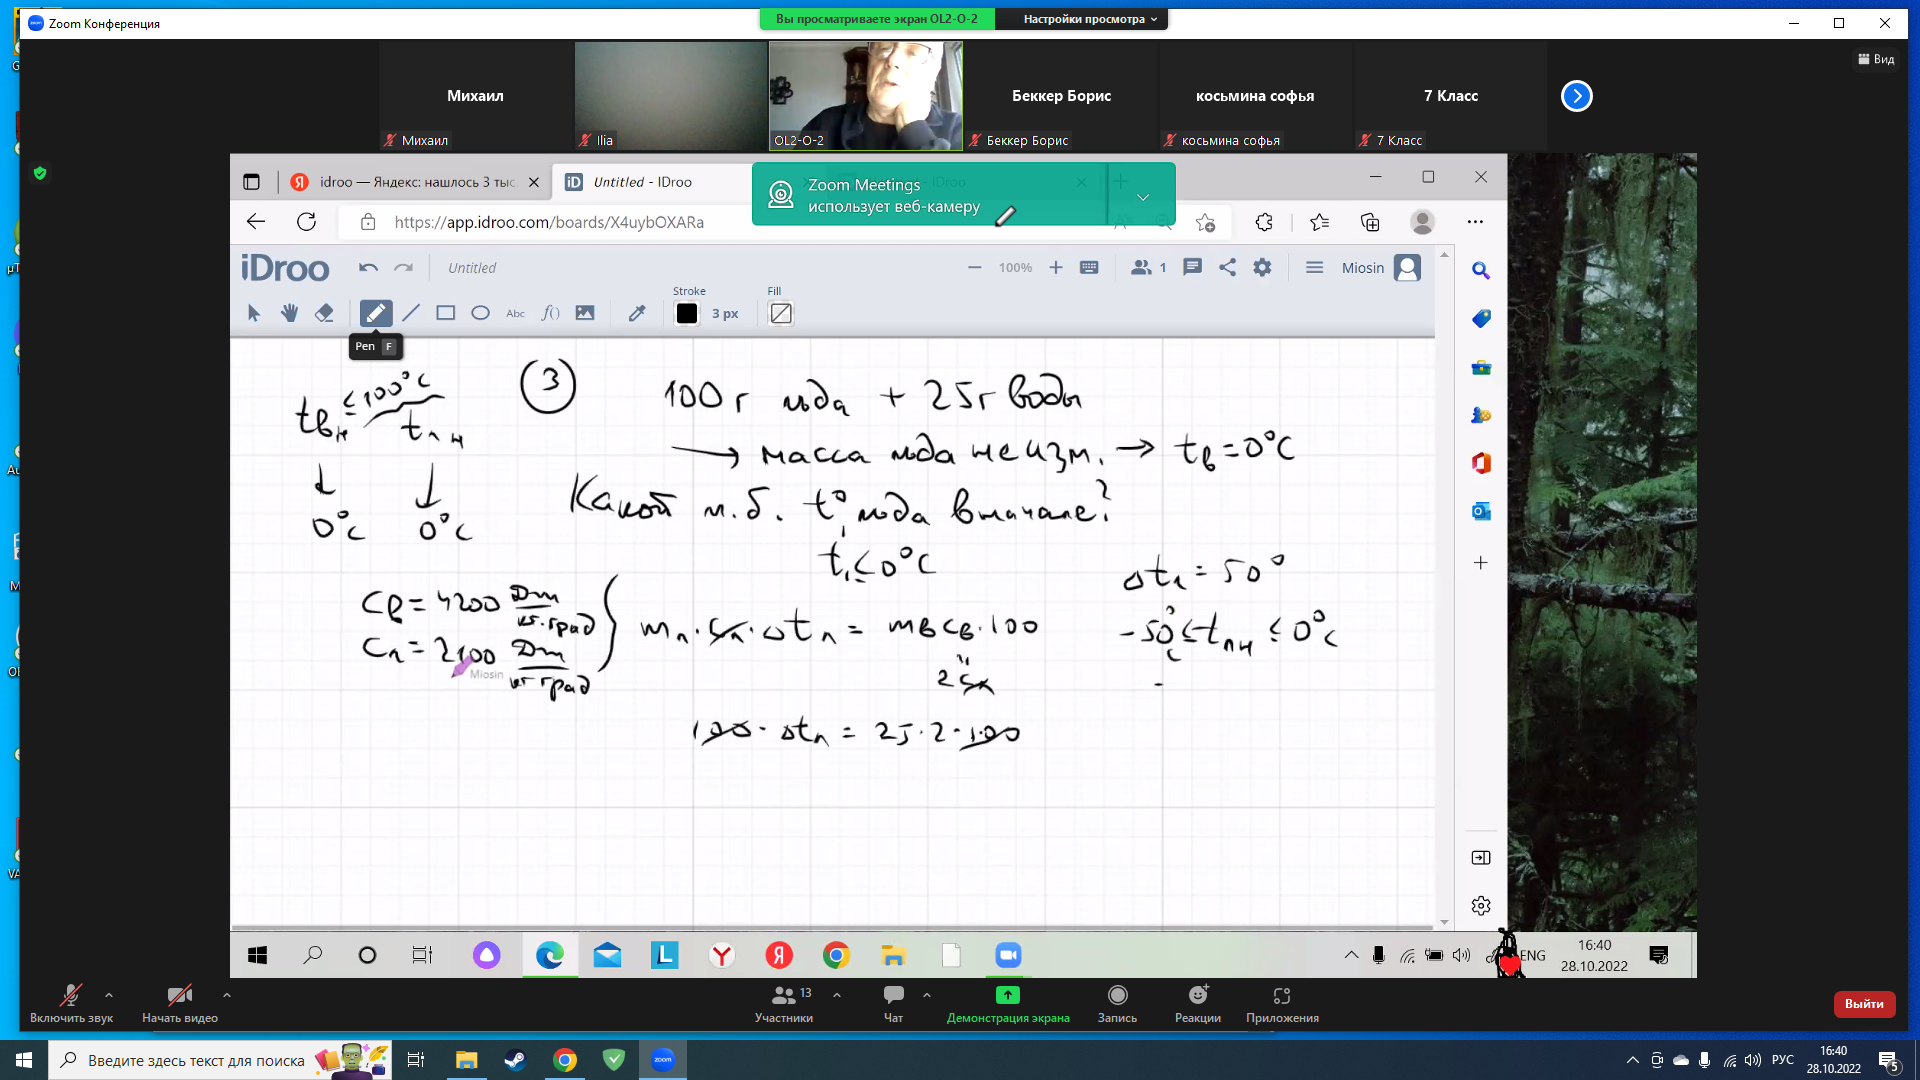 Zoom Конференция
Вы просматриваете экран OL2-O-2
Настройки просмотра
Вид
Михаил
Беккер Борис
косьмина софья
7 Класс
Михаил
Ilia
OL2-O-2
Беккер Борис
косьмина софья
7 Класс
idroo — Яндекс: нашлось 3 тыс
Untitled - IDroo
Zoom Meetings
использует веб-камеру
https://app.idroo.com/boards/X4uybOXARa
iDroo
Untitled
100%
1
Miosin
Abc
f()
Stroke
3 px
Fill
Pen F
tвн ≤ 100°C
tлн
0°C 0°C
3
100г льда + 25г воды
→ масса льда не изм. → tв = 0°C
Какой м.б. t° льда вначале?
t₁ ≤ 0°C
Cв = 4200 Дж/кг·град
Cл = 2100 Дж/кг град
Miosin
mл · cл · Δtл = mв cв · 100
2 cл
100 · Δtл = 25 · 2 · 100
Δtл = 50°
-50°C ≤ tлн ≤ 0°C
-
ENG
16:40
28.10.2022
Включить звук
Начать видео
Участники
13
Чат
Демонстрация экрана
Запись
Реакции
Приложения
Выйти
Введите здесь текст для поиска
zoom
РУС
16:40
28.10.2022
5